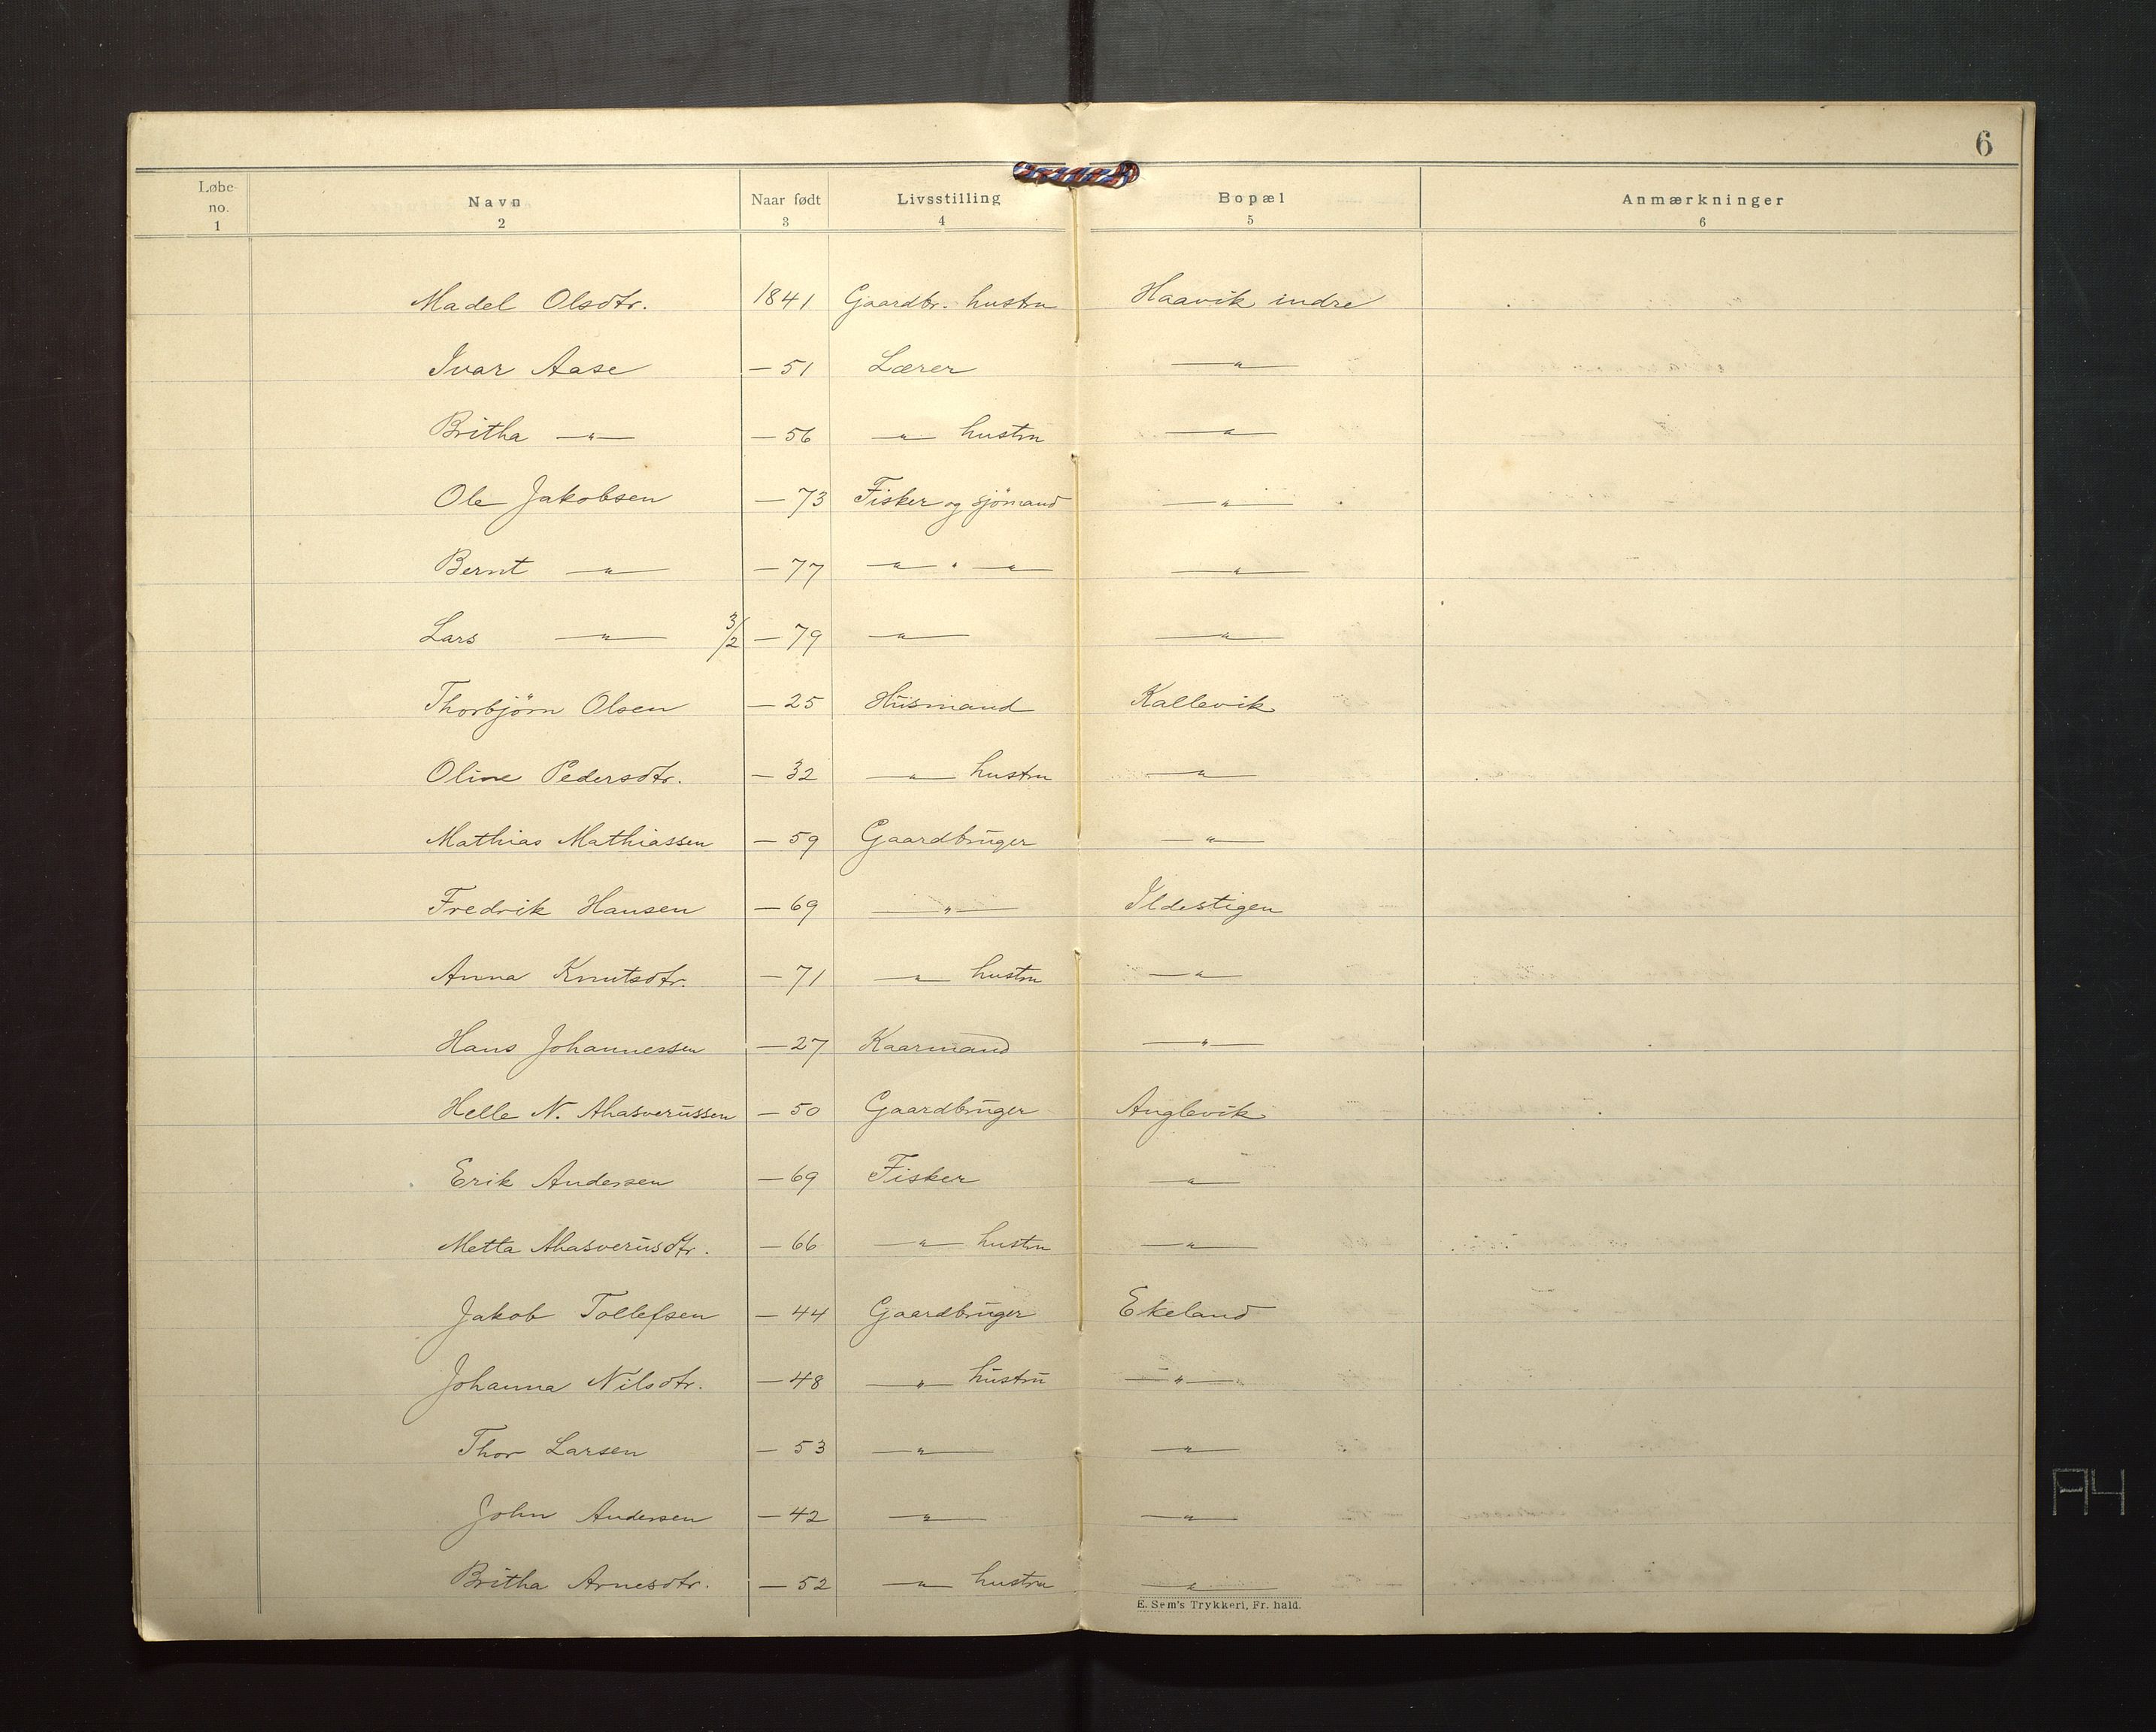 6
Løbe no. Navn Naar født Livsstilling Bopæl Anmærkninger
1 2 3 4 5 6
Madel Olsdtr. 1841 Gaardbr. hustru Haavik indre
Ivar Aase — 51 Lærer —"—
Britha —"— — 56 —"— hustru —"—
Ole Jakobsen — 73 Fisker og sjömand —"—
Bernt —"— — 77 —"— " —"— —"—
Lars —"— 3/2 — 79 —"— —"—
Thorbjörn Olsen — 25 Husmand Kallevik
Oline Pedersdtr. — 32 —"— hustru —"—
Mathias Mathiassen — 59 Gaardbruger —"—
Fredrik Hansen — 69 —"— Ildestigen
Anna Knutsdtr. — 71 —"— hustru —"—
Hans Johannessen — 27 Kaarmand —"—
Helle N. Ahasverussen — 50 Gaardbruger Anglevik
Erik Andersen — 69 Fisker —"—
Metta Ahasverusdtr. — 66 —"— hustru —"—
Jakob Tollefsen — 44 Gaardbruger Ekeland
Johanna Nilsdtr. — 48 —"— hustru —"—
Thor Larsen — 53 —"— —"—
John Andersen — 42 —"— —"—
Britha Arnesdtr. — 52 —"— hustru —"—
E. Sem's Trykkeri, Fr. hald.
A4